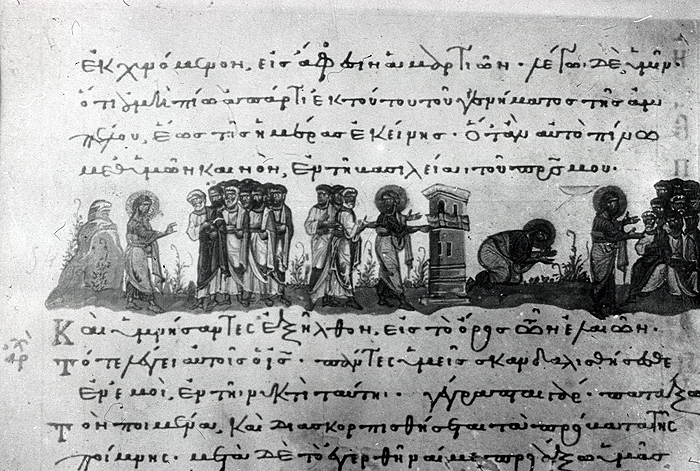 ἐκχυνόμενον, εἰς ἄφεσιν ἁμαρτιῶν · λέγω δὲ ὑμῖν ·
ὅτι οὐ μὴ πίω ἀπάρτι ἐκ τούτου τοῦ γεννήματος τῆς ἀμ
πέλου, ἕως τῆς ἡμέρας ἐκείνης · ὅταν αὐτὸ πίνω
μεθ' ὑμῶν καινὸν, ἐν τῆ βασιλείαι τοῦ πρς μου ·
Καὶ ὑμνήσαντες ἐξῆλθον, εἰς τὸ ὄρος τῶν ἐλαιῶν ·
Τότε λέγει αὐτοῖς ὁ ις · πάντες ὑμεῖς σκανδαλισθήσεσθε
ἐν ἐμοὶ, ἐν τῆ νυκτὶ ταύτη · γέγραπται γάρ · πατάξω
τὸν ποιμένα, καὶ διασκορπισθήσεται τὰ πρόβατα τῆς
ποίμνης · μετὰ δὲ τὸ ἐγερθῆναί με προάξω ὑμᾶς